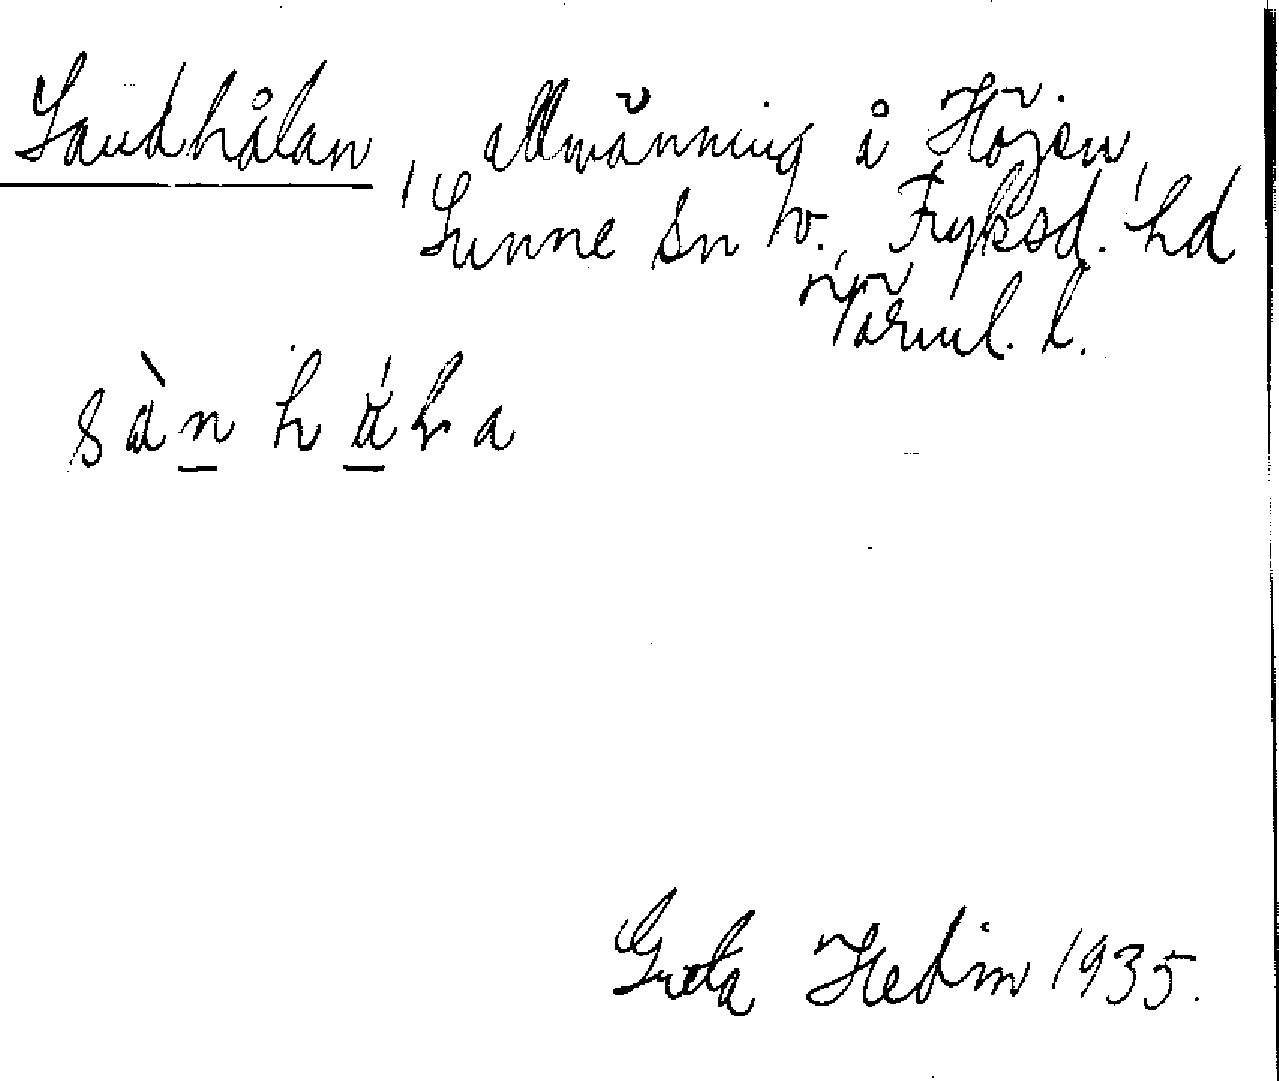 Sandhålan, allmänning å Höjen,
Sunne sn v., Fryksd. hd
Värml. l.
sàn hála
Greta Hedin 1935.